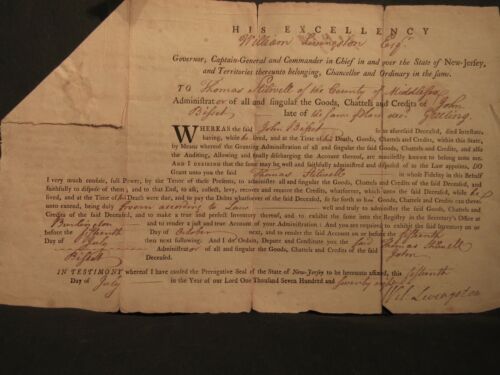 HIS EXCELLENCY
William Livingston Esqr.
Governor, Captain-General and Commander in Chief in and over the State of New-Jersey,
and Territories thereunto belonging, Chancellor and Ordinary in the same.
TO Thomas Stilwell of the County of Middlesex
Administrator of all and singular the Goods, Chattels and Credits of John
Bisset late of the same place decd. Greeting.
WHEREAS the said John Bisset as aforesaid Deceased, died Intestate,
having, while he lived, and at the Time of his Death, Goods, Chattels and Credits, within this State,
by Means whereof the Granting Administration of all and singular the said Goods, Chattels and Credits, and also
the Auditing, Allowing and finally discharging the Account thereof, are manifestly known to belong unto me.
AND I desiring that the same may be well and faithfully administered and disposed of as the Law appoints, DO
Grant unto you the said Thomas Stilwell in whose Fidelity in this Behalf
I very much confide, full Power, by the Tenor of these Presents, to administer all and singular the Goods, Chattels and Credits of the said Deceased, and
faithfully to dispose of them; and to that End, to ask, collect, levy, recover and require the Credits, whatsoever, which unto the said Deceased, while he
lived, and at the Time of his Death were due, and to pay the Debts whatsoever of the said Deceased, so far forth as such Goods, Chattels and Credits can thereto
extent, being duly sworn according to Law well and truly to administer the said Goods, Chattels and
Credits of the said Deceased, and to make a true and perfect Inventory thereof, and to exhibit the same into the Registry in the Secretary's Office at
Burlington and to render a just and true Account of your Administration: And you are required to exhibit the said Inventory on or
before the fifteenth Day of October next, and to render the said Account on or before the fifteenth
Day of July then next following: And I do Ordain, Depute and Constitute you the said Thomas Stilwell
Administrator of all and singular the Goods, Chattels and Credits of the said John
Bissett Deceased.
IN TESTIMONY whereof I have caused the Prerogative Seal of the State of New-Jersey to be hereunto affixed, this fifteenth
Day of July in the Year of our Lord One Thousand Seven Hundred and seventy eight
Wil. Livingston